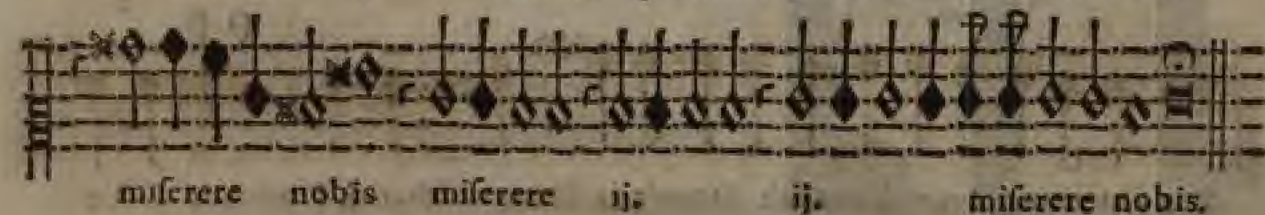 miſerere nobis miſerere ij. ij. miſerere nobis.